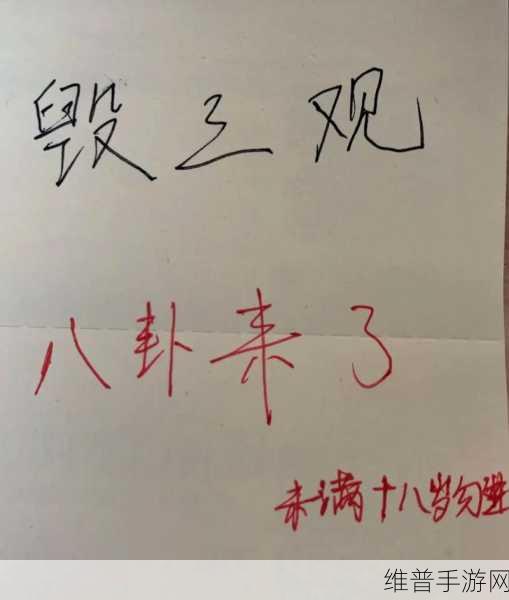 毁三观
八卦来了
未满十八岁勿进
维普手游网